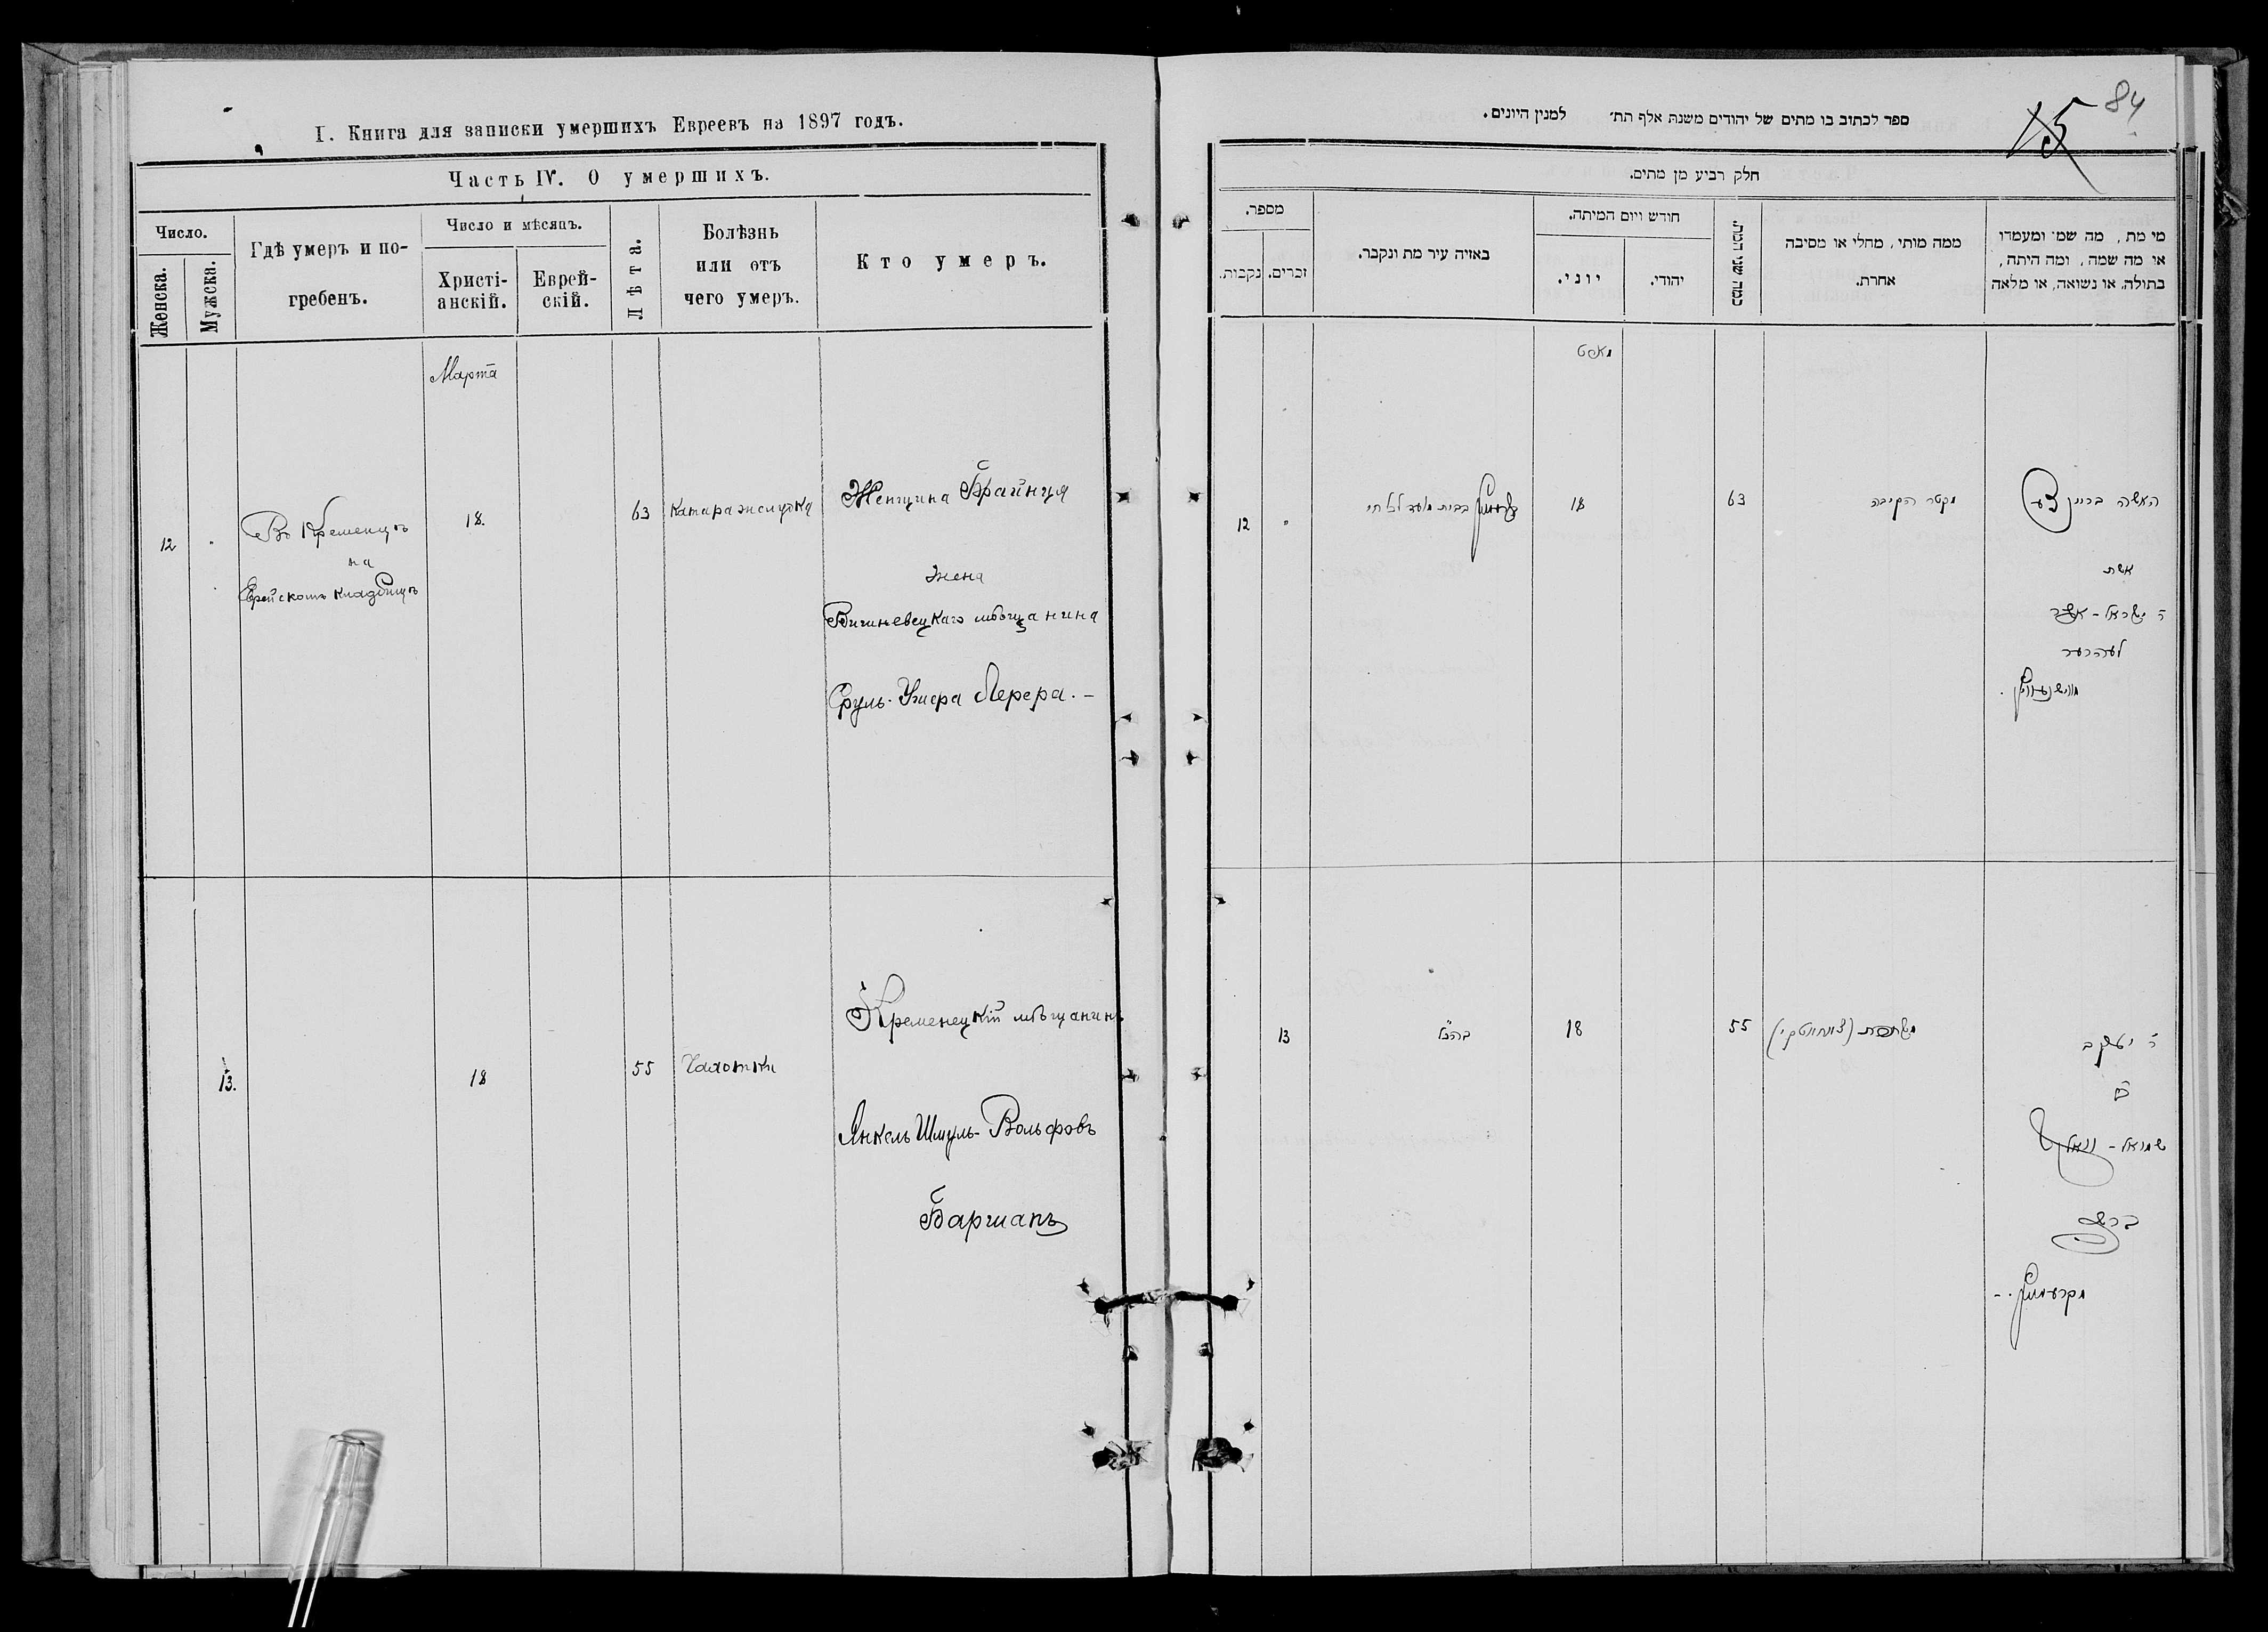 I. Книга для записки умершихъ Евреевъ на 1897 годъ.
Часть IV. О умершихъ.
Число.
Женска.
Мужска.
Гдѣ умеръ и по-
гребенъ.
Число и мѣсяцъ.
Христі-
анскій.
Еврей-
скій.
Лѣта.
Болѣзнь
или отъ
чего умеръ.
Кто умеръ.
Марта
12
Въ Кременцѣ
на
Еврейскомъ кладбищѣ
18.
63
Катара желудка
Женщина Брайнця
жена
Вишневецкаго мѣщанина
Сруль-Ушера Лерера. –
13.
18
55
Чахотки
Кременецкій мѣщанинъ
Янкель Шмуль-Вольфовъ
84
15
ספר לכתוב בו מתים של יהודים משנת אלף תת׳ למנין היונים.
חלק רביע מן מתים.
מספר.
נקבות.
זכרים.
באיזה עיר מת ונקבר.
חודש ויום המיתה.
יוני.
יהודי.
כמה שני חיות.
ממה מותי, מחלי או מסיבה
אחרת.
מי מת, מה שמו ומעמדו
או מה שמה, ומה היתה,
בתולה, או נשואה, או מלאה
מארט
12
בבית מועד לכל חי
18
63
מקטר הקיבה
האשה בריינצע
אשת
ר׳ ישראל-אשר
לעהרער
13
18
55
ר׳ יעקב
שמואל-וואלף